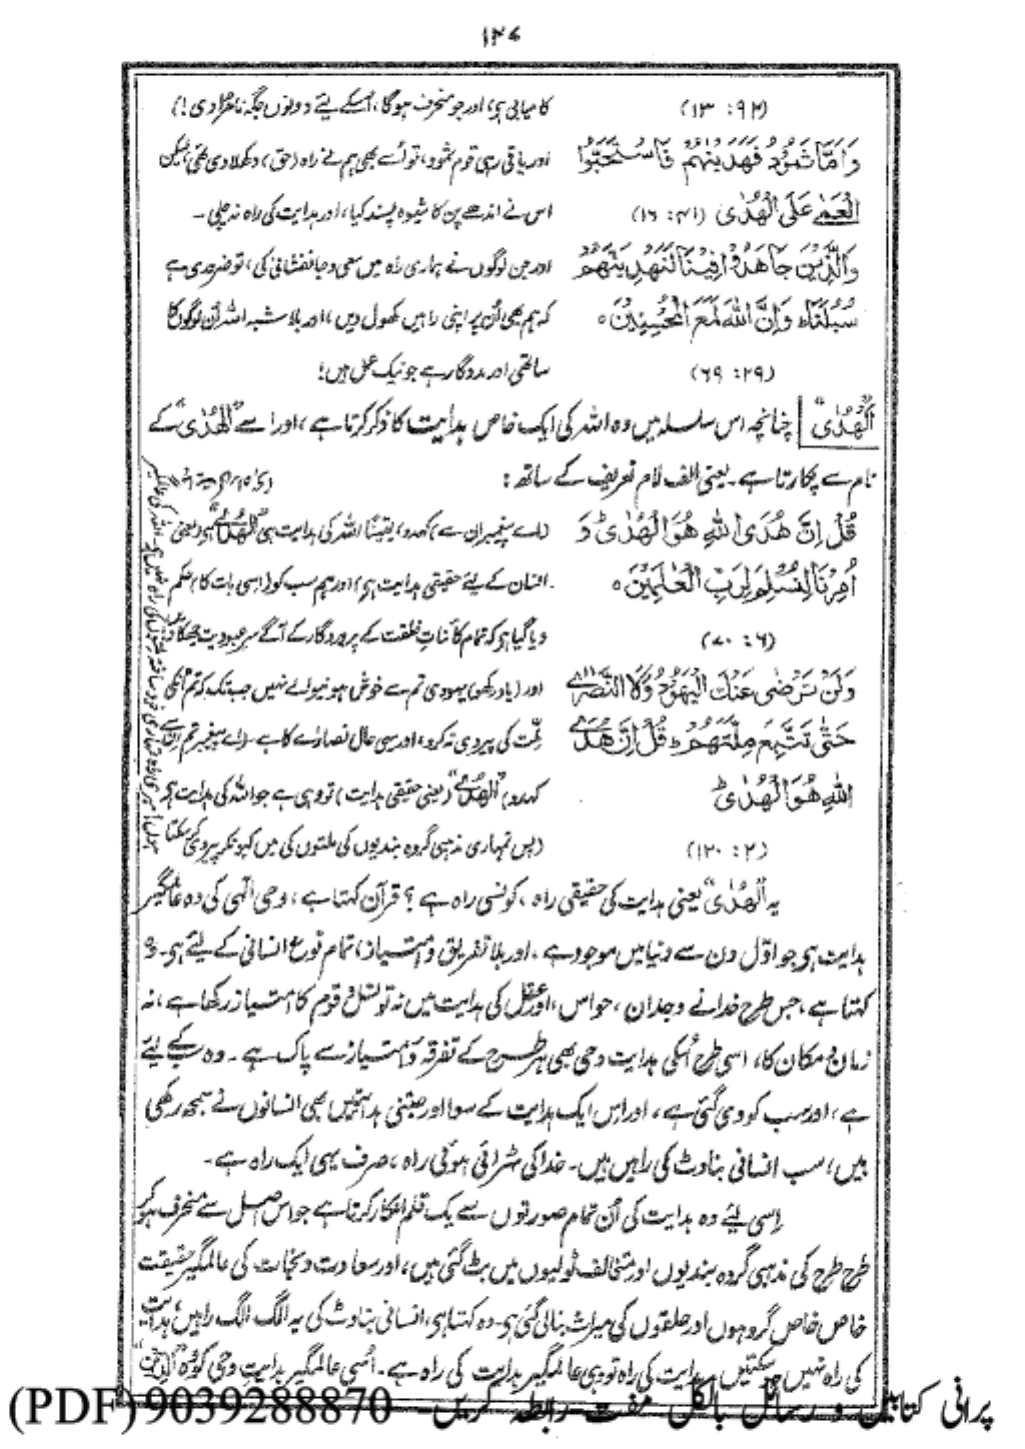 ۱۲۷
(۱۳ : ۹۲) کامیابی ہی، اور جو منحرف ہوگا، اُسکے لیئے دونوں جگہ نامرادی!)
وَاَمَّا ثَمُوْدُ فَهَدَيْنٰهُمْ فَاسْتَحَبُّوا اور باقی رہی قوم ثمود، تو اُسے بھی ہم نے راہ (حق) دکھلادی تھی، لیکن
الْعَمٰى عَلَى الْهُدٰى (۴۱ : ۱۶) اس نے اندھے پن کا شیوہ پسند کیا، اور ہدایت کی راہ نہ چلی۔
وَالَّذِيْنَ جَاهَدُوْا فِيْنَا لَنَهْدِيَنَّهُمْ اور جن لوگوں نے ہماری راہ میں سعی و جانفشانی کی، تو ضروری ہے
سُبُلَنَا وَاِنَّ اللهَ لَمَعَ الْمُحْسِنِيْنَ ○ کہ ہم بھی اُن پر اپنی راہیں کھول دیں، اور بلاشبہ اللہ اُن لوگوں کا
(۲۹ : ۶۹) ساتھی اور مددگار ہے جو نیک عمل ہیں!
اَلْهُدٰى چنانچہ اس سلسلہ میں وہ اللہ کی ایک خاص ہدایت کا ذکر کرتا ہے، اور اسے ”الْهُدٰى“ کے
نام سے پکارتا ہے۔ یعنی الف لام تعریف کے ساتھ:
قُلْ اِنَّ هُدَى اللهِ هُوَ الْهُدٰى وَ (اے پیغمبر! ان سے) کہدو، یقیناً اللہ کی ہدایت ہی ”الْهُدٰى“ ہی (یعنی
اُمِرْنَا لِنُسْلِمَ لِرَبِّ الْعٰلَمِيْنَ ○ انسان کے لیئے حقیقی ہدایت ہی) اور ہم سب کو (اسی بات کا) حکم
(۶ : ۷۰) دیا گیا ہو کہ تمام کائنات خلقت کے پروردگار کے آگے سر عبودیت جھکادیں
وَلَنْ تَرْضٰى عَنْكَ الْيَهُوْدُ وَلَا النَّصٰرٰى اور (یاد رکھو) یہودی تم سے خوش ہونیوالے نہیں جبتک کہ تم اُنکی
حَتّٰى تَتَّبِعَ مِلَّتَهُمْ قُلْ اِنَّ هُدَى ملّت کی پیروی نہ کرو، اور یہی حال نصاریٰ کا ہے۔ (اے پیغمبر تم ان سے
اللهِ هُوَ الْهُدٰى کہدو) ”الْهُدٰى“ (یعنی حقیقی ہدایت) تو وہی ہے جو اللہ کی ہدایت ہی
(۲ : ۱۲۰) (پس تمہاری مذہبی گروہ بندیوں کی ملتوں کی میں کیونکر پیروی کرسکتا
یہ ”الْهُدٰى“ یعنی ہدایت کی حقیقی راہ، کونسی راہ ہے؟ قرآن کہتا ہے، وحی الٰہی کی وہ عالمگیر
ہدایت ہی جو اوّل دن سے دنیا میں موجود ہے، اور بلا تفریق و امتیاز، تمام نوع انسانی کے لیئے ہی۔ وہ
کہتا ہے، جس طرح خدا نے وجدان، حواس، اور عقل کی ہدایت میں نہ تو نسل و قوم کا امتیاز رکھا ہے، نہ
زمان و مکان کا، اسی طرح اُسکی ہدایت وحی بھی ہر طرح کے تفرقہ و امتیاز سے پاک ہے۔ وہ سب کے لیئے
ہے، اور سب کو دی گئی ہے، اور اس ایک ہدایت کے سوا اور جتنی ہدایتیں بھی انسانوں نے سمجھ رکھی
ہیں، سب انسانی بناوٹ کی راہیں ہیں۔ خدا کی ٹھرائی ہوئی راہ، صرف یہی ایک راہ ہے۔
اِسی لیئے وہ ہدایت کی اُن تمام صورتوں سے یک قلم انکار کرتا ہے جو اس اصل سے منحرف ہوکر
طرح طرح کی مذہبی گروہ بندیوں اور متخالف ٹولیوں میں بٹ گئی ہیں، اور سعادت و نجات کی عالمگیر حقیقت
خاص خاص گروہوں اور حلقوں کی میراث بنالی گئی ہی۔ وہ کہتا ہی، انسانی بناوٹ کی یہ الگ الگ راہیں، ہدایت
کی راہ نہیں ہوسکتیں۔ ہدایت کی راہ تو وہی عالمگیر ہدایت کی راہ ہے۔ اُسی عالمگیر ہدایت وحی کو وہ ”الدین“
پرانی کتابیں و رسائل بالکل مفت رابطہ کریں۔ 9039288870 (PDF)